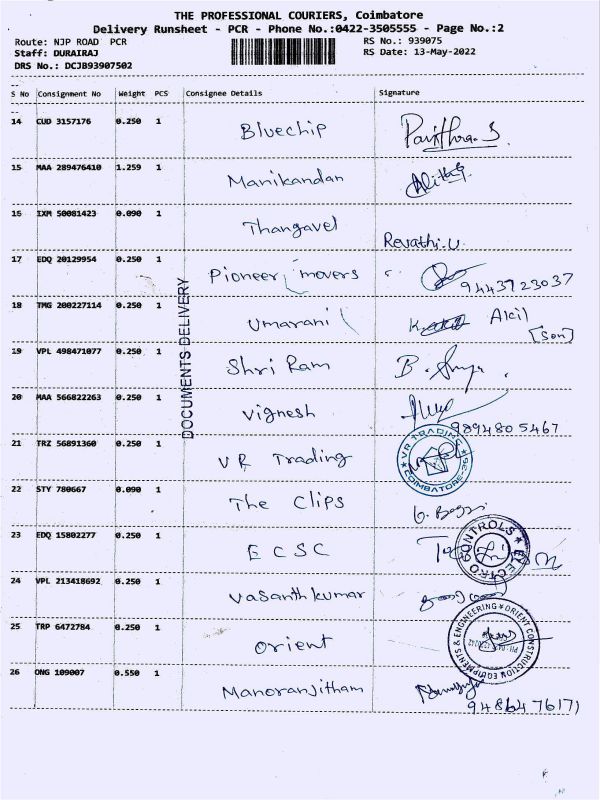 THE PROFESSIONAL COURIERS, Coimbatore
Delivery Runsheet - PCR - Phone No.:0422-3505555 - Page No.:2
Route: NJP ROAD PCR
RS No.: 939075
Staff: DURAIRAJ
RS Date: 13-May-2022
DRS No.: DCJB93907502
S No Consignment No Weight PCS Consignee Details Signature
14 CUD 3157176 0.250 1 Bluechip Pavithra.S
15 MAA 289476410 1.259 1 Manikandan
16 IXM 50081423 0.090 1 Thangavel Revathi.U
17 EDQ 20129954 0.250 1 Pioneer movers 9443723037
18 TMG 200227114 0.250 1 Umarani [Son]
19 VPL 498471077 0.250 1 Shri Ram
20 MAA 566822263 0.250 1 Vignesh 9894805467
21 TRZ 56891360 0.250 1 V R Trading VR TRADING COIMBATORE-36
22 STY 780667 0.090 1 The Clips
23 EDQ 15802277 0.250 1 E C S C ELECTRO CONTROLS
24 VPL 213418692 0.250 1 Vasanth kumar
25 TRP 6472784 0.250 1 Orient ORIENT CONSTRUCTION EQUIPMENTS & ENGINEERING
26 ONG 109007 0.550 1 Manoranjitham 9486476171
DOCUMENTS DELIVERY